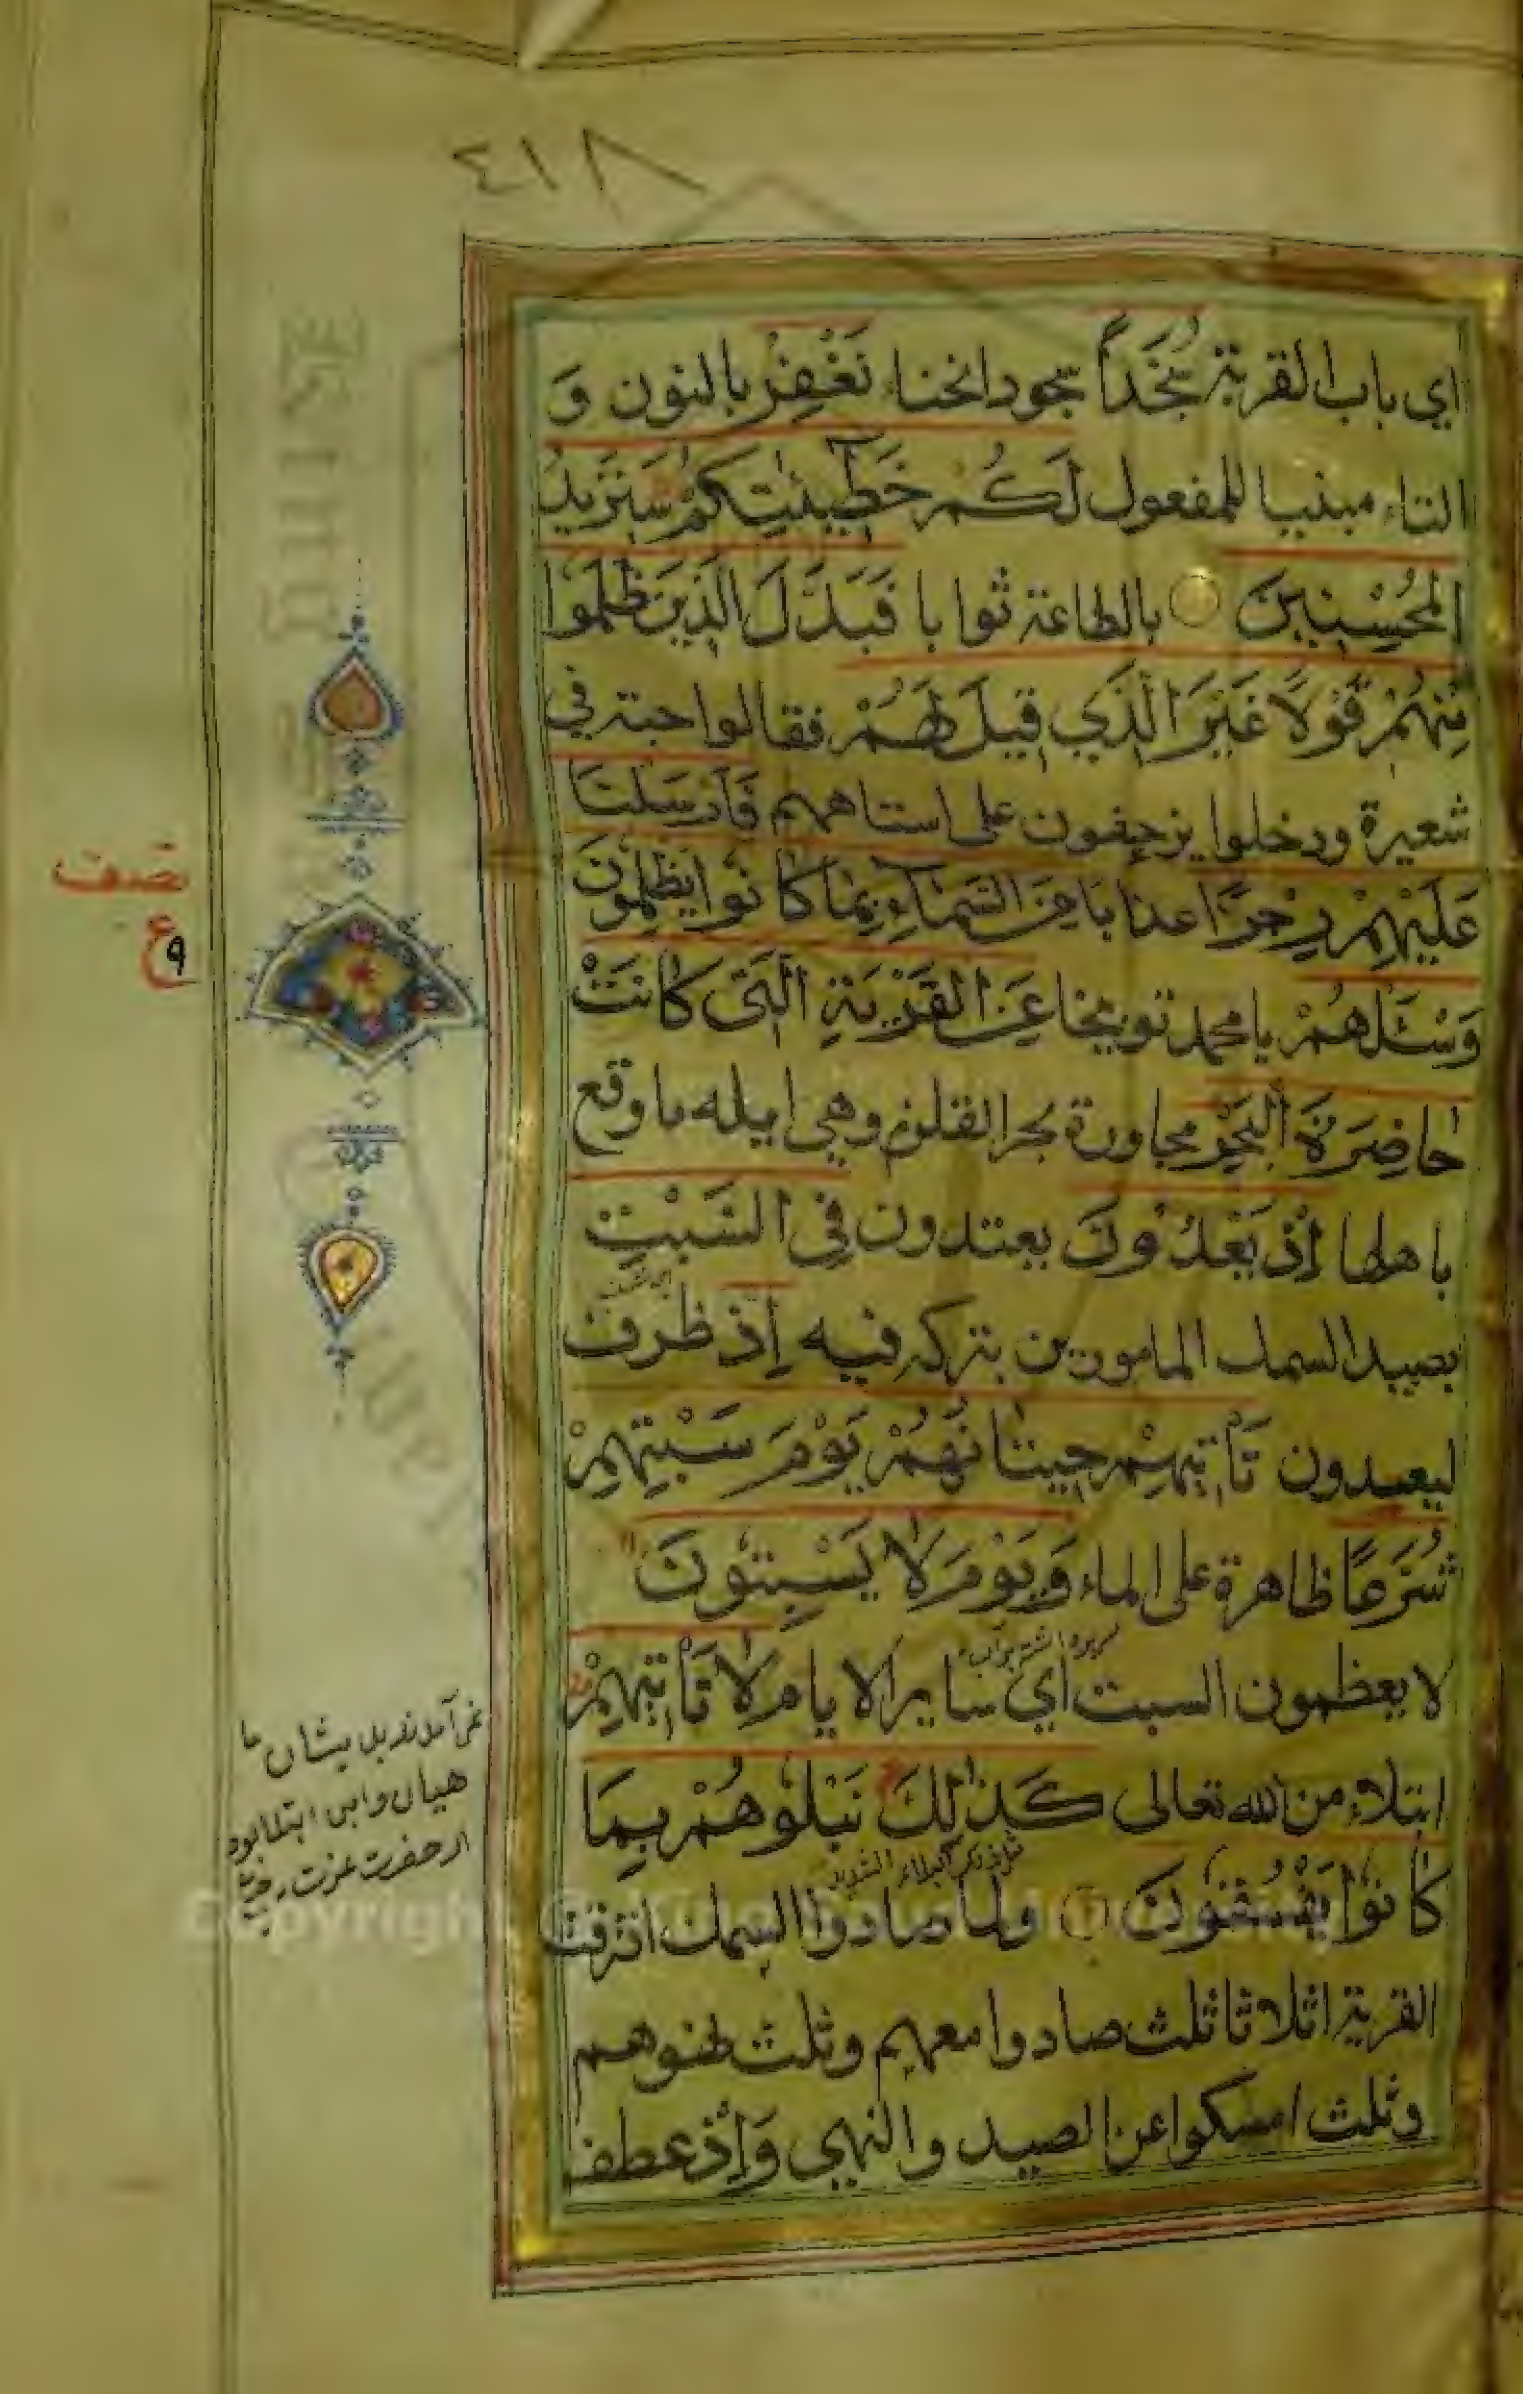 ٤١٨
اي باب القرية سُجَّداً سجود انحناء نَغْفِرْ بالنون وَ
التاء مبنيا للمفعول لَكُمْ خَطِيئٰتِكُمْ سَنَزِيدُ
الْمُحْسِنِينَ بالطاعة ثوابا فَبَدَّلَ الَّذِينَ ظَلَمُوا
مِنْهُمْ قَوْلًا غَيْرَ الَّذِي قِيلَ لَهُمْ فقالوا حبة في
شعيرة ودخلوا يزحفون على استاههم فَأَرْسَلْنَا
عَلَيْهِمْ رِجْزًا عذابا مِنَ السَّمَاءِ بِمَا كَانُوا يَظْلِمُونَ
نصف
ع ٩
وَسْئَلْهُمْ يا محمد توبيخا عَنِ الْقَرْيَةِ الَّتِي كَانَتْ
حَاضِرَةَ الْبَحْرِ مجاورة بحر القلزم وهي ايله ما وقع
باهلها إِذْ يَعْدُونَ يعتدون فِي السَّبْتِ
بصيد السمك المامورين بتركه فيه إِذْ ظرف
ليعدون تَأْتِيهِمْ حِيتَانُهُمْ يَوْمَ سَبْتِهِمْ
شُرَّعًا ظاهرة على الماء وَيَوْمَ لَا يَسْبِتُونَ
لا يعظمون السبت اي ساير الايام لَا تَأْتِيهِمْ
ابتلاء من الله تعالى كَذٰلِكَ نَبْلُوهُمْ بِمَا
كَانُوا يَفْسُقُونَ ولما صادوا السمك افترقت
القرية اثلاثا ثلث صادوا معهم وثلث نهوهم
وثلث امسكوا عن الصيد والنهي وَإِذْ عطف
نمى آمدند بديشان ما
هيان واين ابتلا بود
از حضرت عزت
Copyright ©